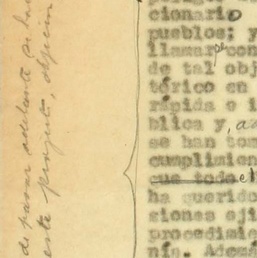 cionario
pueblos; y
llamar con
de tal obj
tórico en
rápida e i
blica y, a
se han tom
cumplimien
que todo el
ha querido
siones eji
procedimie
nía. Ademá
de pasar adelante
este proyecto,